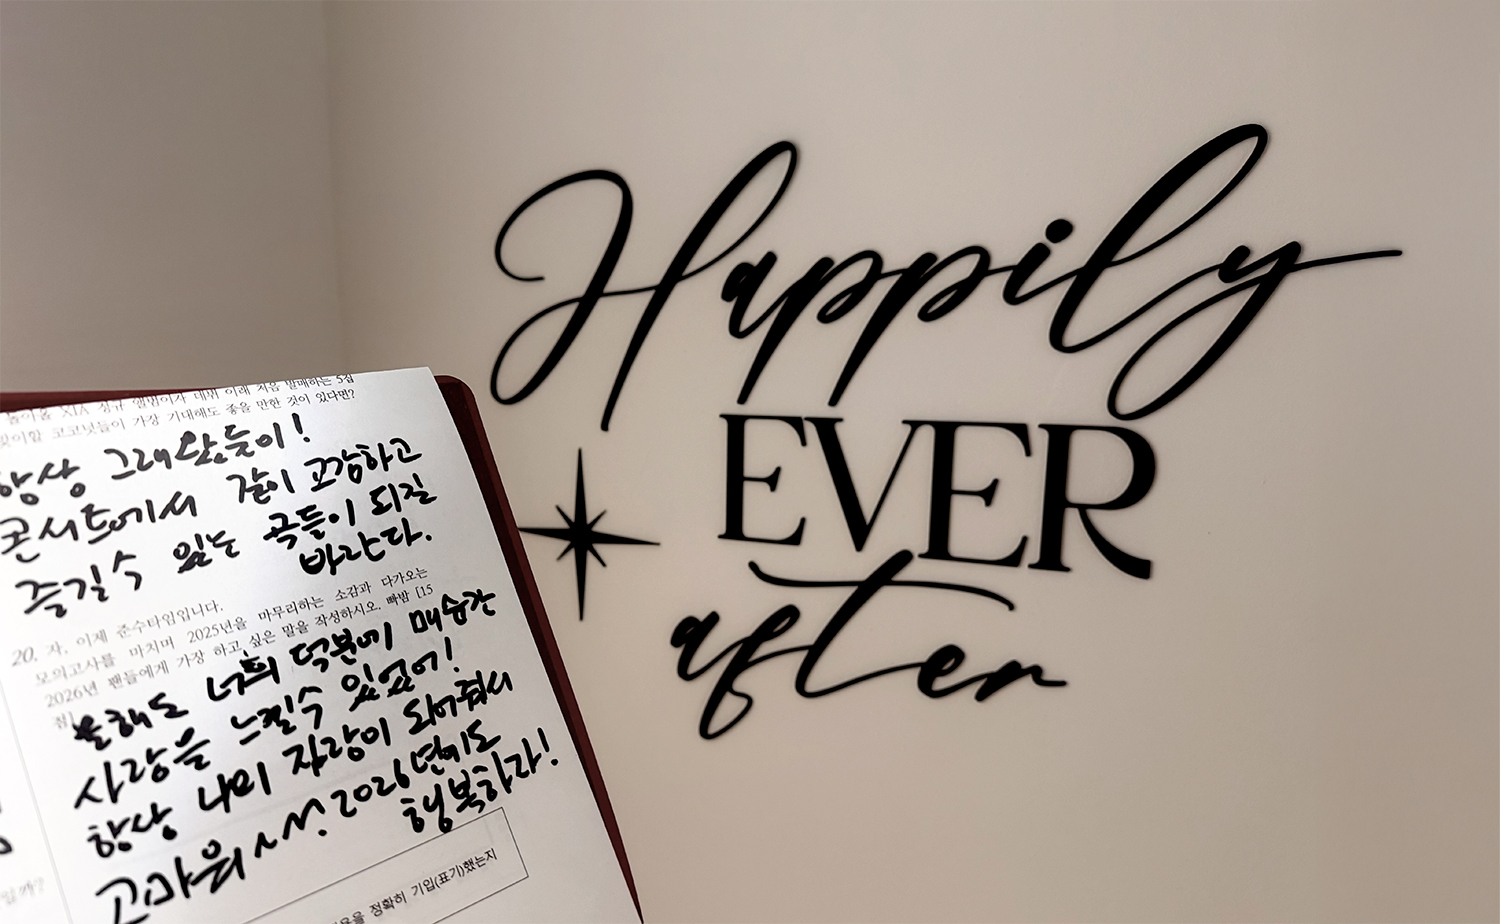 Happily
EVER
after
XIA 정규 앨범이자 데뷔 이래 처음 발매하는 5집
코코넛들이 가장 기대해도 좋을 만한 것이 있다면?
항상 그래왔듯이!
콘서트에서 같이 교감하고
즐길수 있는 곡들이 되길
바란다.
20. 자, 이제 준수타임입니다.
모의고사를 마치며 2025년을 마무리하는 소감과 다가오는
2026년 팬들에게 가장 하고 싶은 말을 작성하시오. 빠밤 [15
점]
올해도 너희 덕분에 매순간
사랑을 느낄수 있었어!
항상 나의 자랑이 되어줘서
고마워~ 2026년에도
행복하자!
정확히 기입(표기)했는지